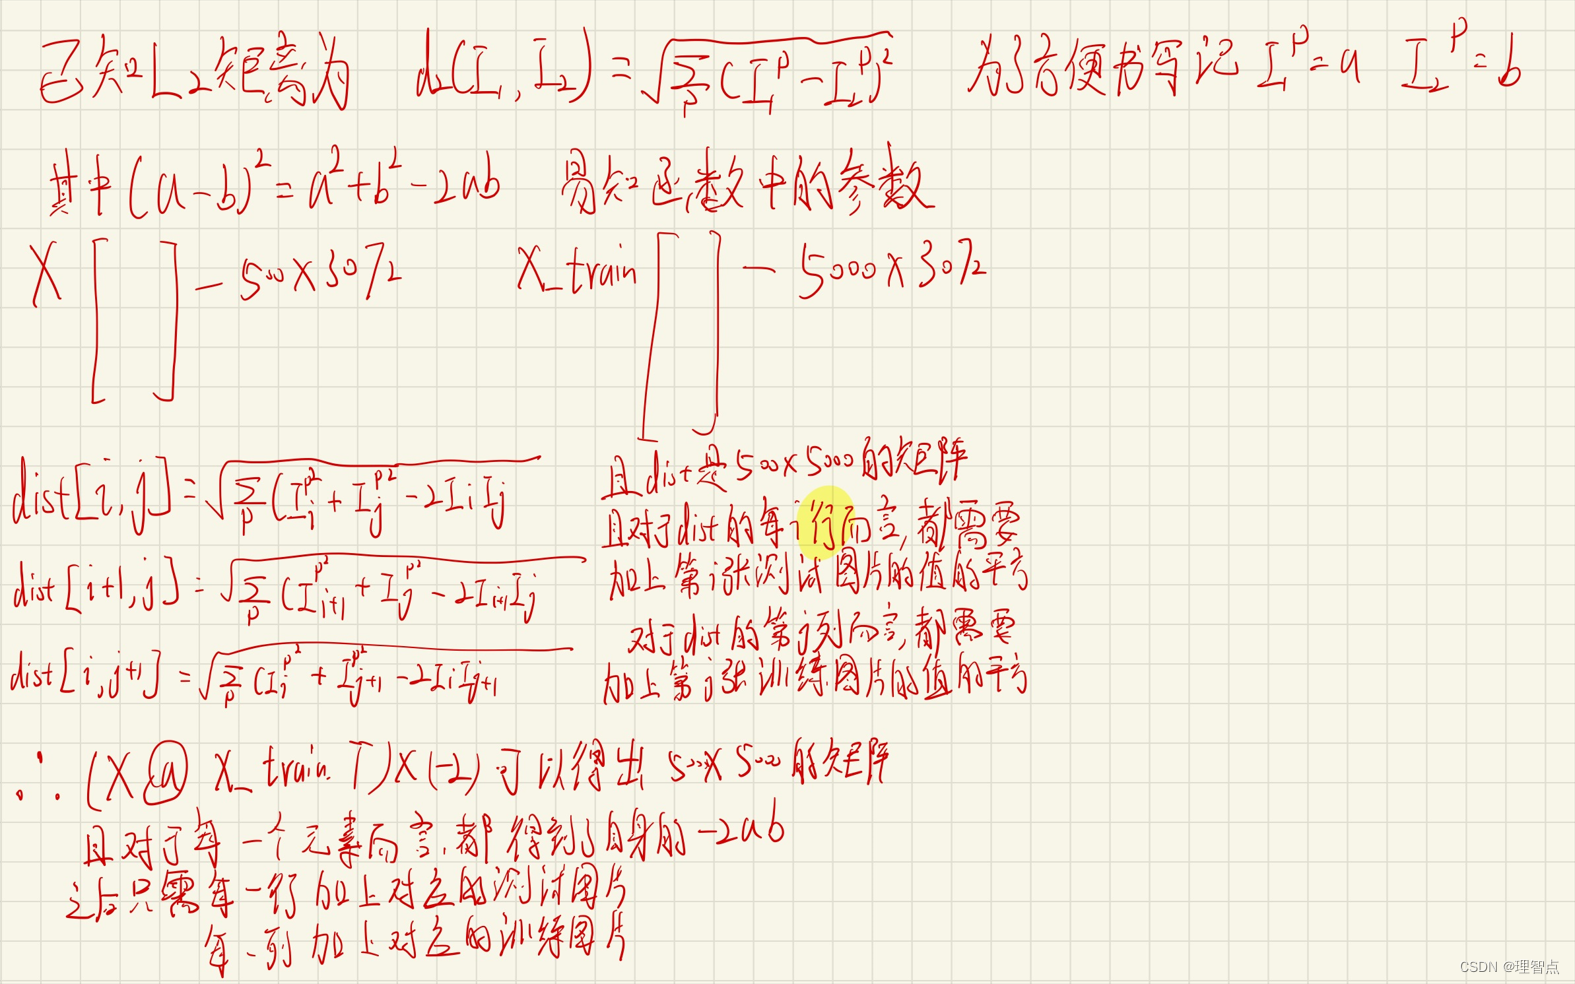 已知L2矩离为 d2(I1,I2)=√Σp(I1^p-I2^p)² 为了方便书写记 I1^p=a I2^p=b
其中(a-b)²=a²+b²-2ab 易知函数中的参数
X [ ] - 500×3072 X_train [ ] - 5000×3072
dist[i,j]=√Σp(Ii^p²+Ij^p²-2IiIj
且dist是500×5000的矩阵
且对于dist的每i行而言,都需要
dist[i+1,j]=√Σp(Ii+1^p²+Ij^p²-2Ii+1Ij
加上第i张测试图片的值的平方
对于dist的第j列而言,都需要
dist[i,j+1]=√Σp(Ii^p²+Ij+1^p²-2IiIj+1
加上第j张训练图片的值的平方
∴(X@X_train.T)×(-2)可以得出500×5000的矩阵
且对于每一个元素而言,都得到了自身的-2ab
之后只需每一行加上对应的测试图片
每一列加上对应的训练图片
CSDN @理智点